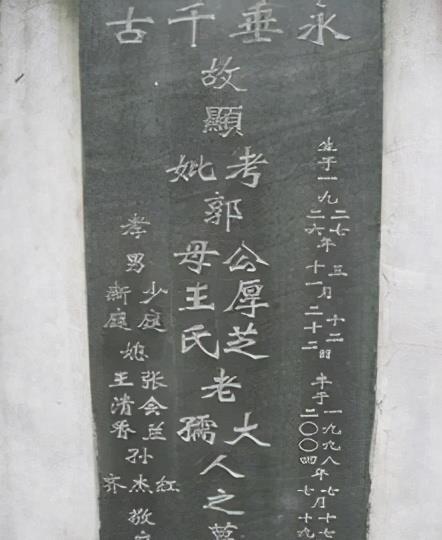 永垂千古
生于一九二七二六年三十一月十二二十二日卒于一九九八二〇〇四年七七月十七十九
故顯考妣郭公厚芝母王氏老大孺人之墓
孝男少庭新庭媳张会兰王清香孙红杰齐敬